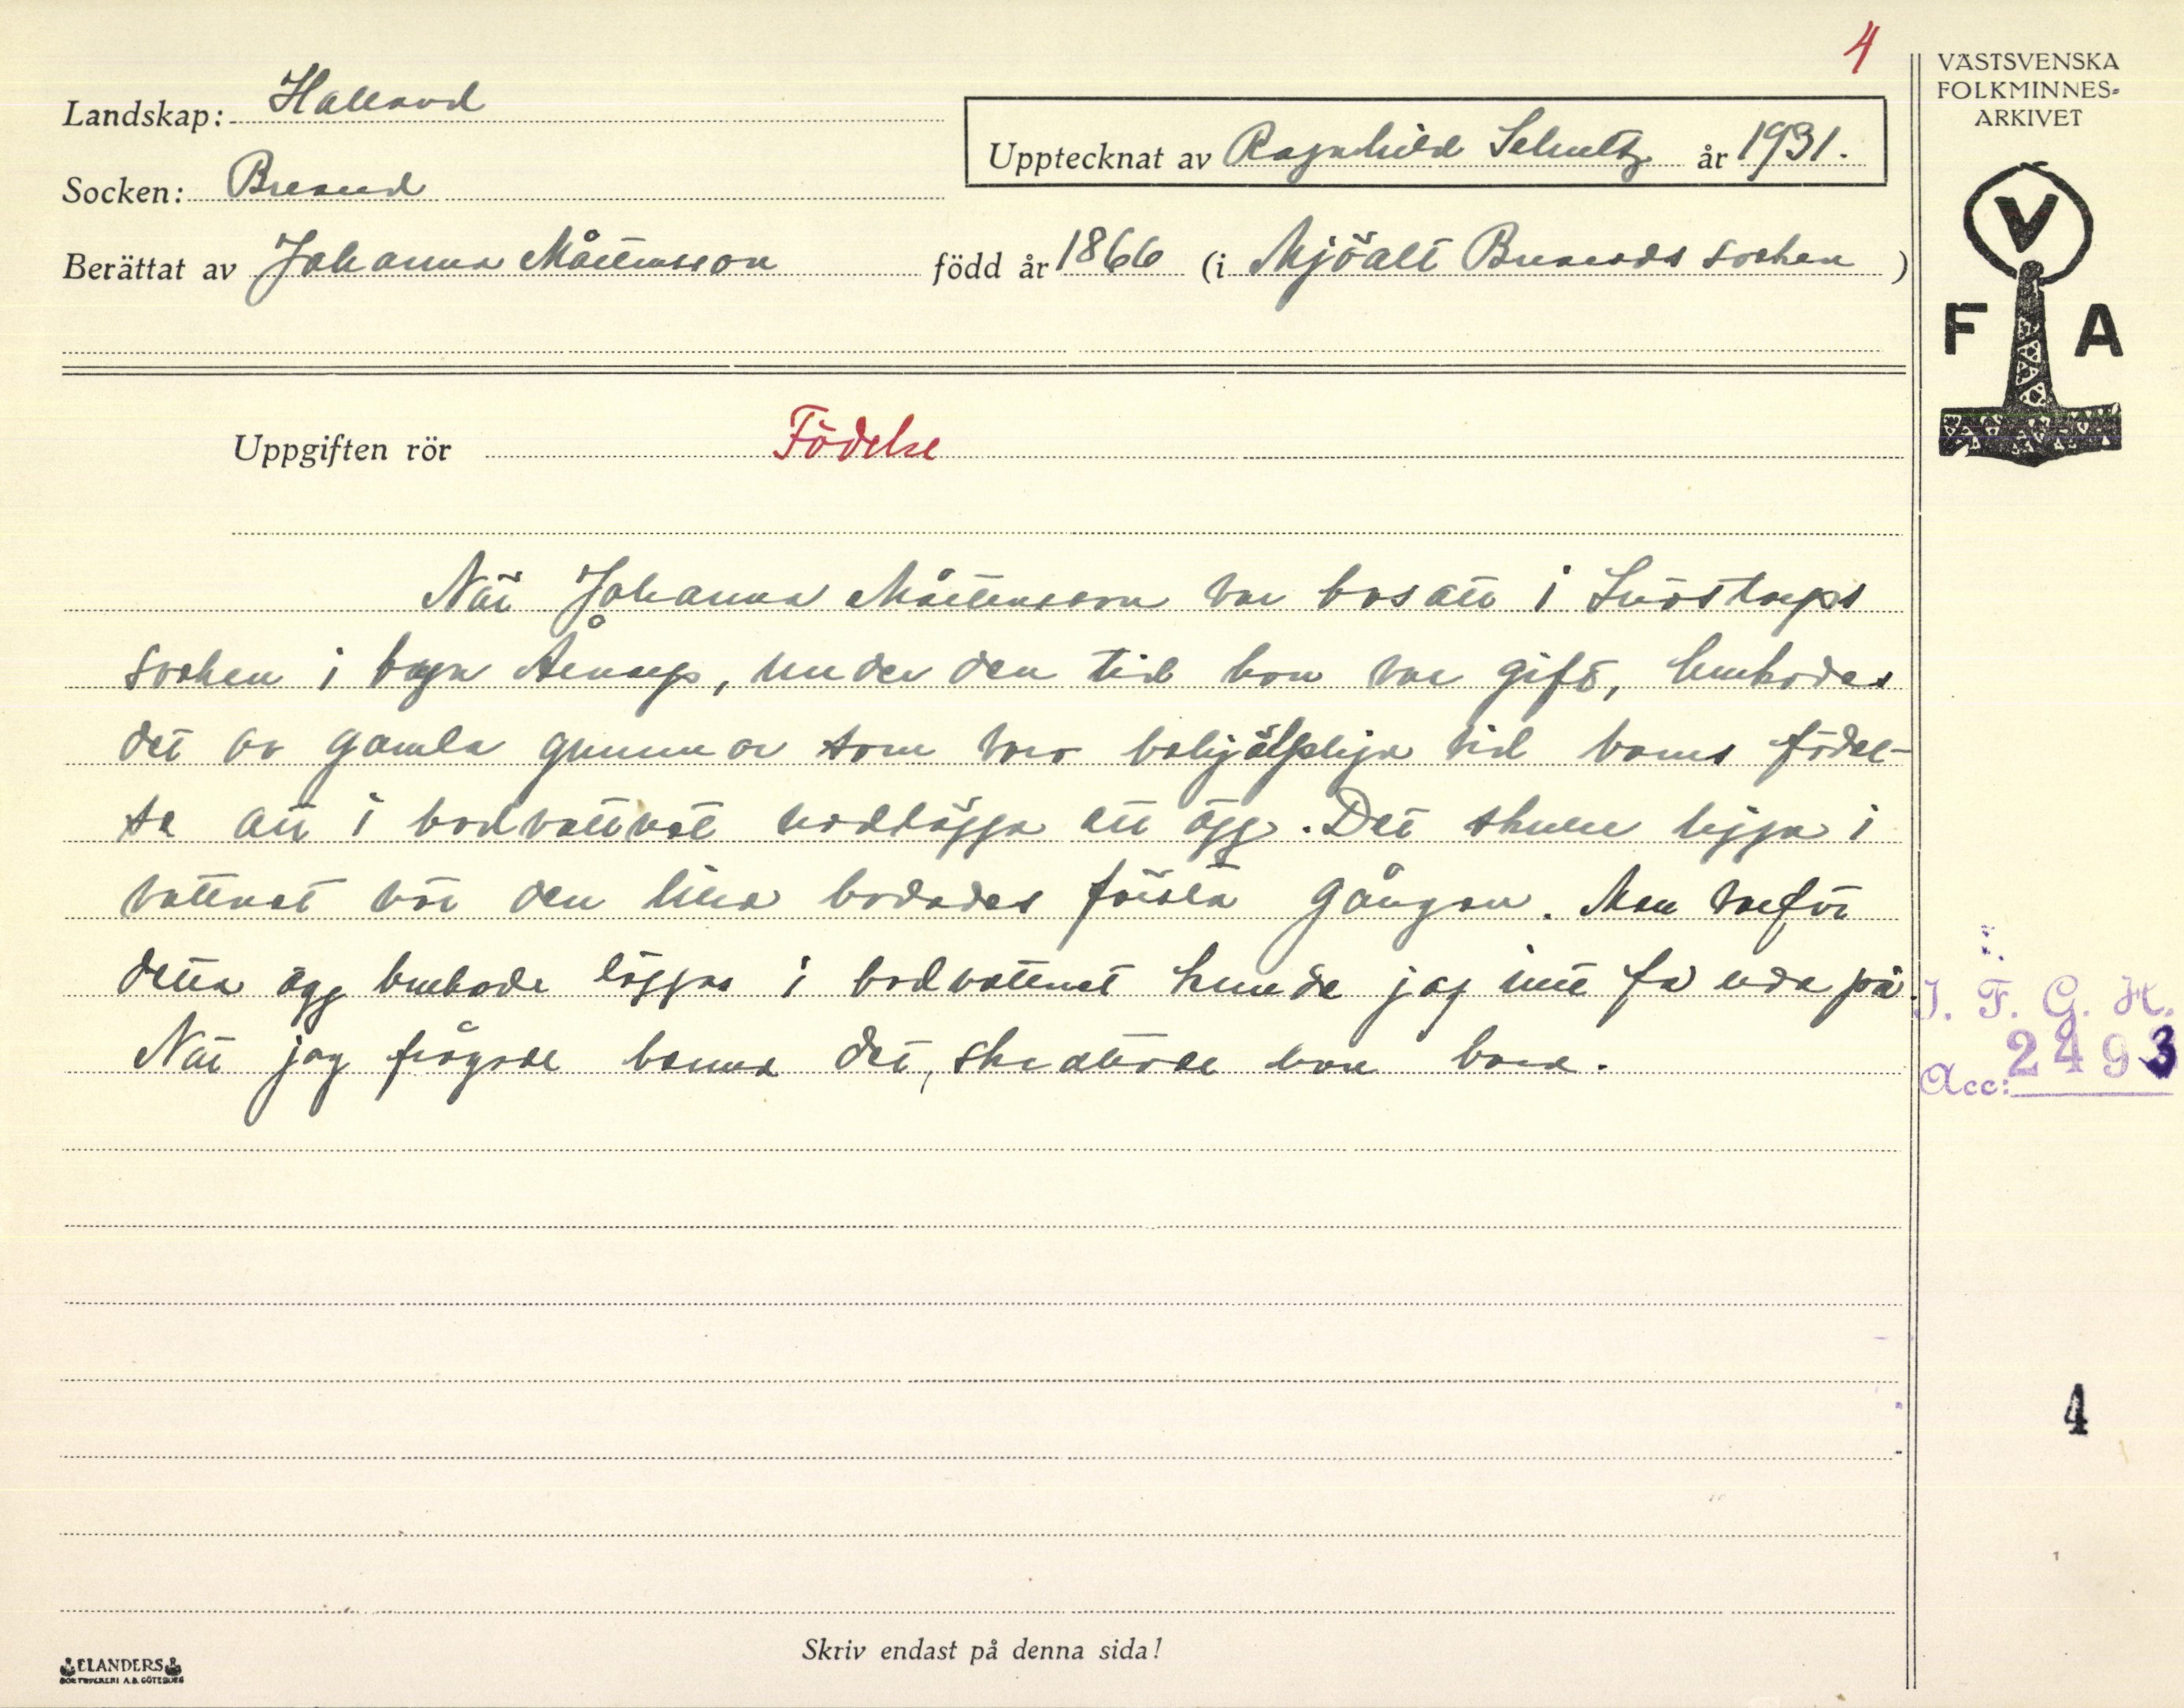 4
VÄSTSVENSKA
FOLKMINNES-
ARKIVET
Landskap: Halland
Upptecknat av Ragnhild Schultz år 1931.
Socken: Breared
Berättat av Johanna Mårtensson född år 1866 (i Mjöalt Breareds socken)
V
F A
Uppgiften rör Födelse
När Johanna Mårtensson var bosatt i Snöstorps
socken i byn Årnarp, under den tid hon var gift, brukades
det av gamla gummor som voro behjälpliga vid barns födel-
se att i badvattnet nedlägga ett ägg. Det skulle ligga i
vattnet när den lilla badades första gången. Men varför
detta ägg brukade läggas i badvattnet kunde jag inte få reda på.
När jag frågade henne det, skrattade hon bara.
I. F. G. H.
Acc: 2493
4
Skriv endast på denna sida!
ELANDERS
BOKTRYCKERI A.B. GÖTEBORG